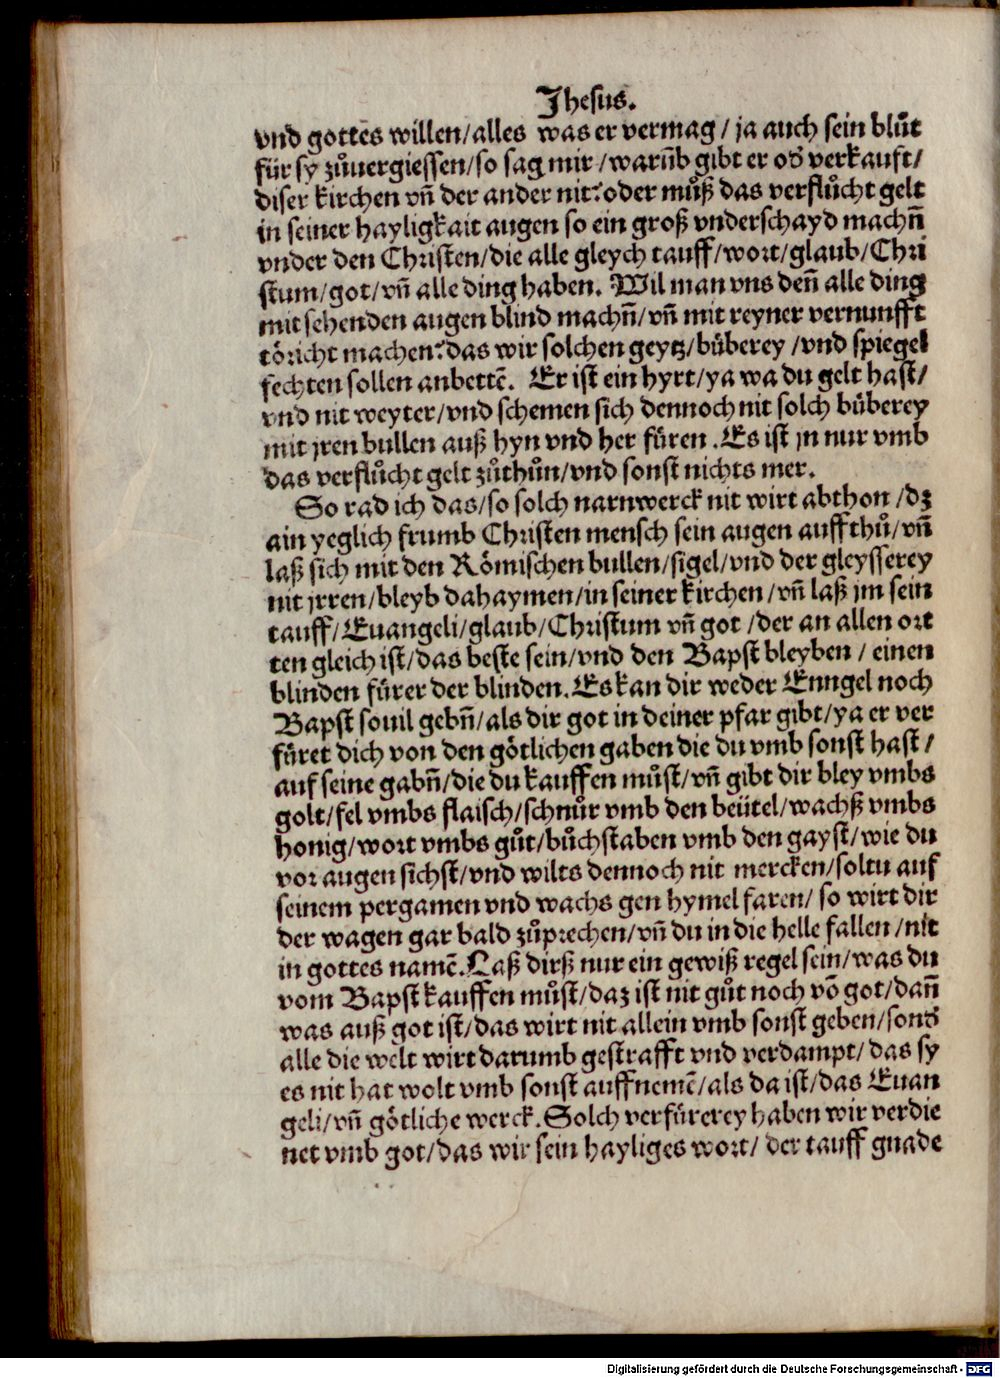 Jhesus.
vnd gottes willen/alles was er vermag / ja auch sein blůt
für sy zůuergiessen/so sag mir/warũb gibt er od̕ verkauft/
diser kirchen vñ der ander nit? oder můß das verflůcht gelt
in seiner hayligkait augen so ein groß vnderschayd machñ
vnder den Christen/die alle gleych tauff/wort/glaub/Chri
stum/got/vñ alle ding haben. Wil man vns deñ alle ding
mit sehenden augen blind machñ/vñ mit reyner vernunfft
töricht machen? das wir solchen geytz/büberey /vnd spiegel
fechten sollen anbettẽ. Er ist ein hyrt/ya wa du gelt hast/
vnd nit weyter/vnd schemen sich dennoch nit solch büberey
mit jren bullen auß hyn vnd her füren. Es ist jn nur vmb
das verflůcht gelt zůthůn/vnd sonst nichts mer.
So rad ich das/so solch narnwerck nit wirt abthon /dz
ain yeglich frumb Christen mensch sein augen auffthů/vñ
laß sich mit den Römischen bullen/sigel/vnd der gleysserey
nit jrren/bleyb dahaymen/in seiner kirchen/vñ laß jm sein
tauff/Euangeli/glaub/Christum vñ got /der an allen ort
ten gleich ist/das beste sein/vnd den Bapst bleyben / einen
blinden fürer der blinden. Es kan dir weder Enngel noch
Bapst souil gebñ/als dir got in deiner pfar gibt/ya er ver
füret dich von den götlichen gaben die du vmb sonst hast/
auf seine gabñ/die du kauffen můst/vñ gibt dir bley vmbs
golt/fel vmbs flaisch/schnůr vmb den beütel/wachß vmbs
honig/wort vmbs gůt/bůchstaben vmb den gayst/wie du
vor augen sichst/vnd wilts dennoch nit mercken/soltu auf
seinem pergamen vnd wachs gen hymel faren/ so wirt dir
der wagen gar bald zůprechen/vñ du in die helle fallen /nit
in gottes namẽ. Laß dirß nur ein gewiß regel sein/was du
vom Bapst kauffen můst/daz ist nit gůt noch võ got/dañ
was auß got ist/das wirt nit allein vmb sonst geben/sond̕
alle die welt wirt darumb gestrafft vnd verdampt/das sy
es nit hat wolt vmb sonst auffnemẽ/als da ist/das Euan
geli/vñ götliche werck. Solch verfürerey haben wir verdie
net vmb got/das wir sein hayliges wort/ der tauff gnade
Digitalisierung gefördert durch die Deutsche Forschungsgemeinschaft - DFG